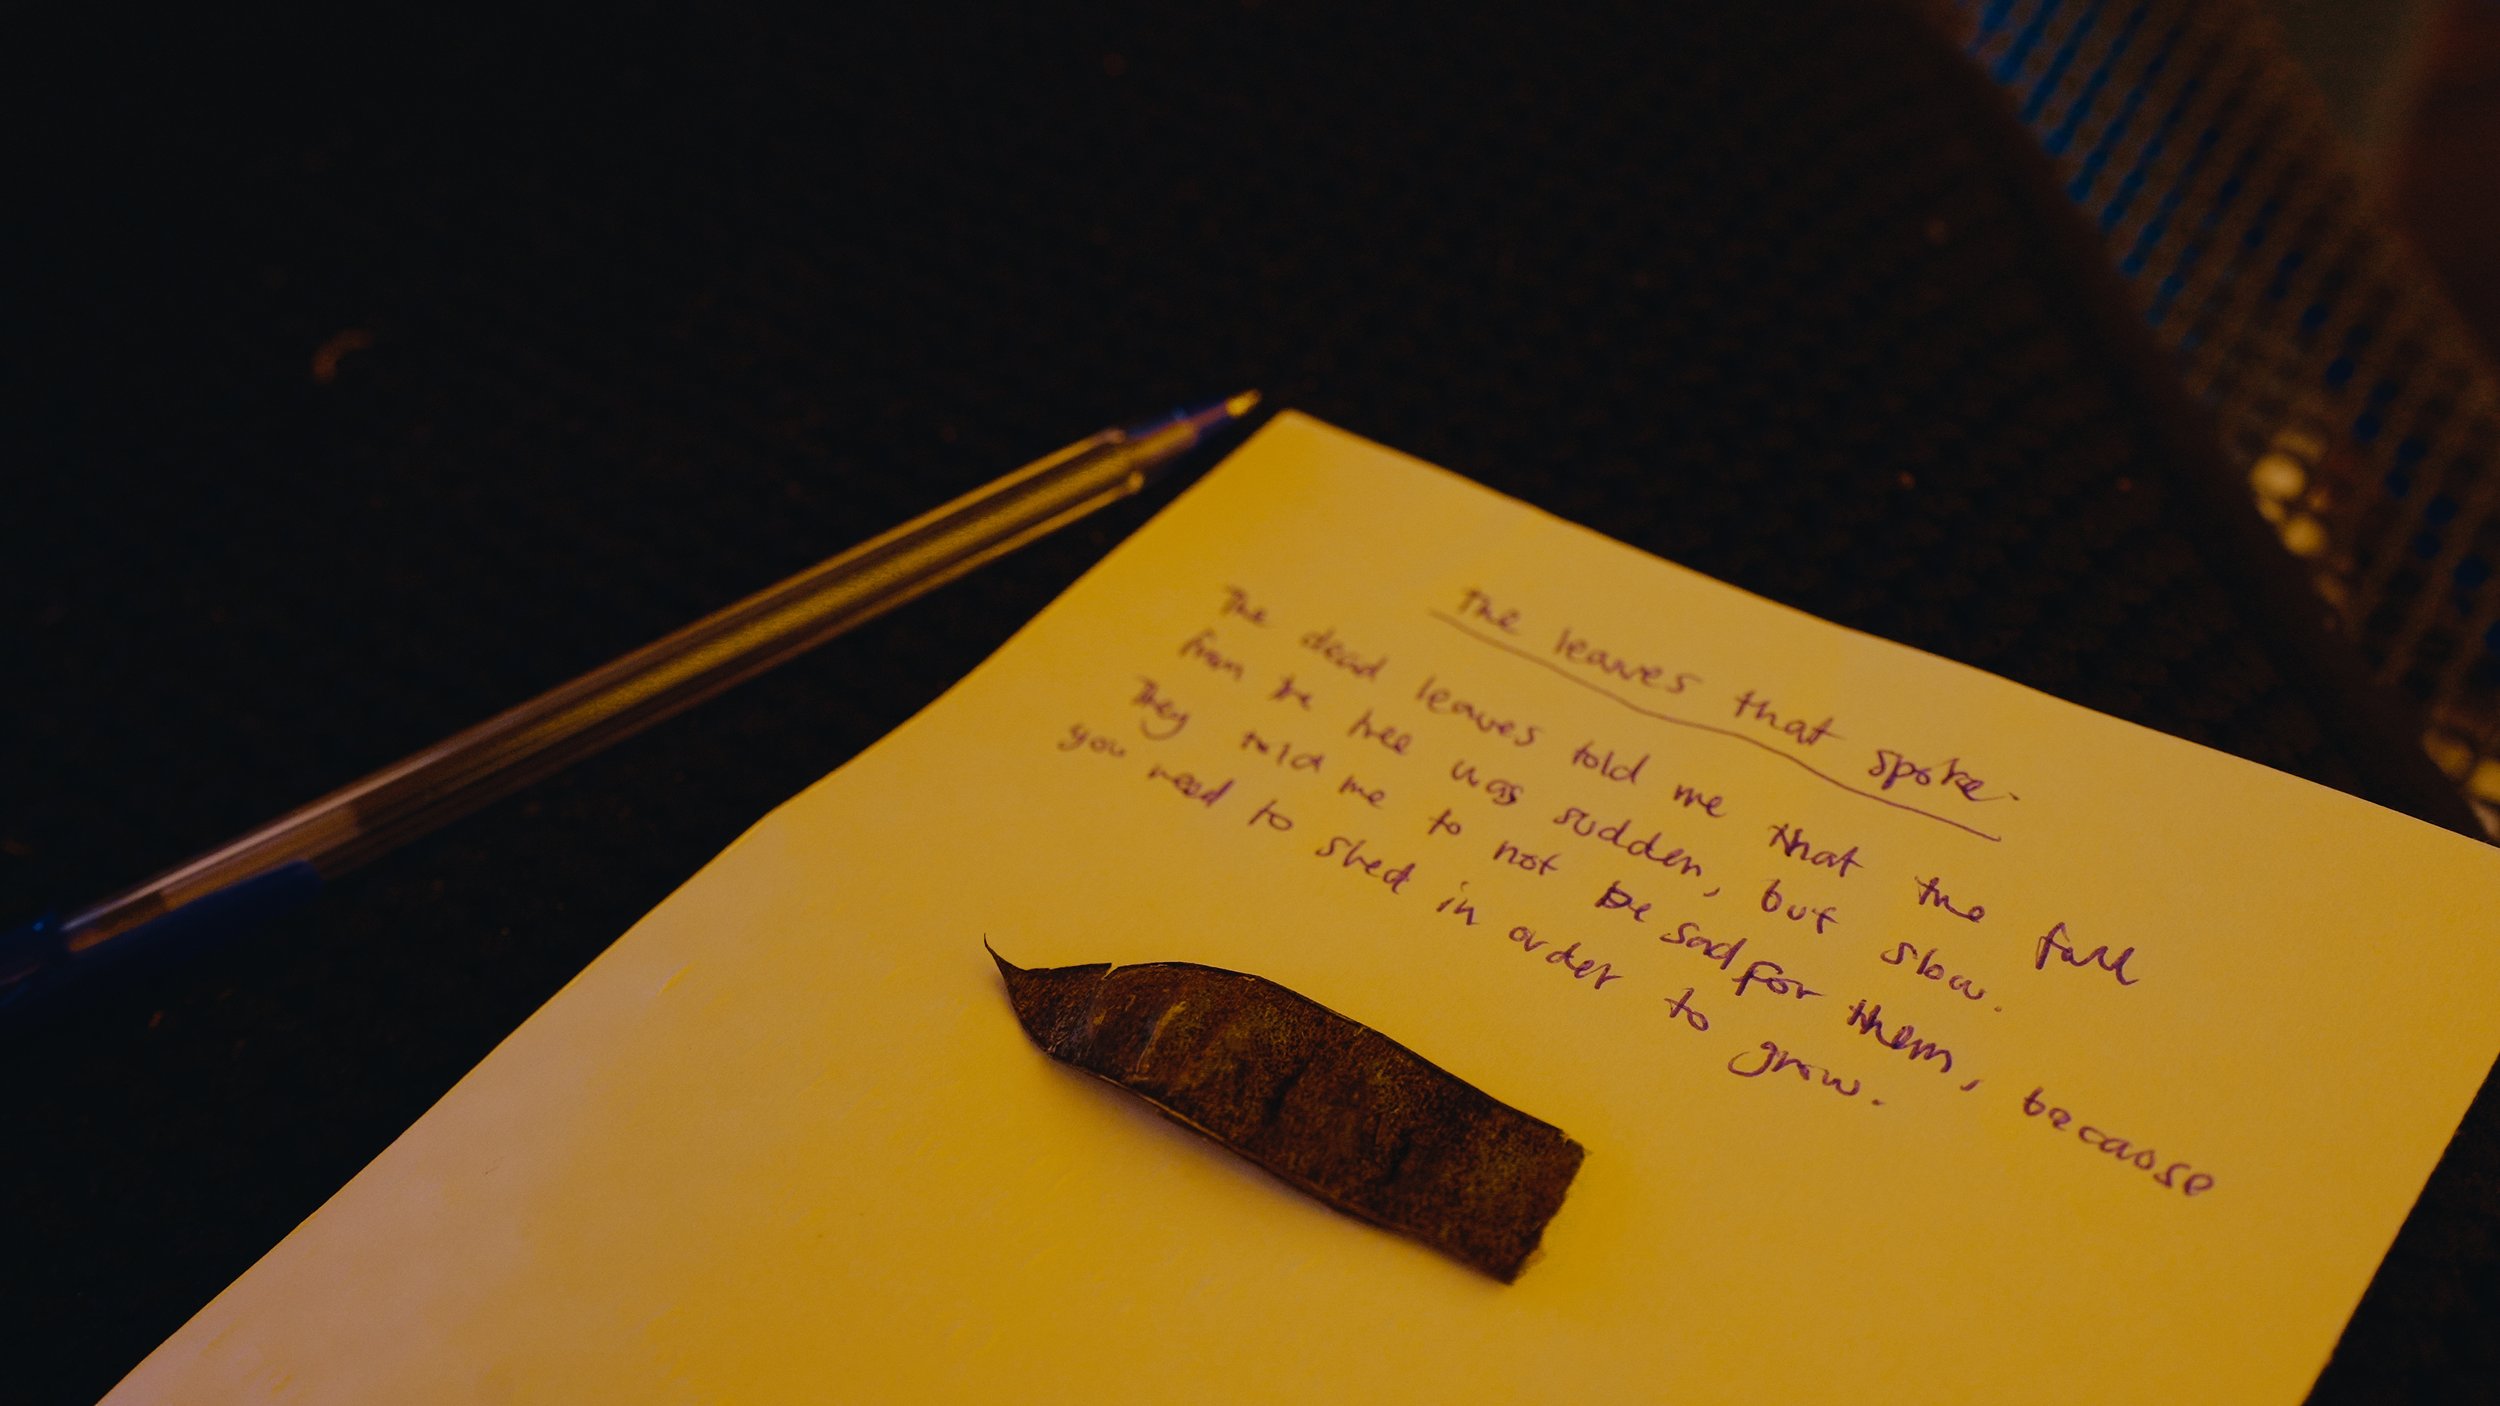 The leaves that spoke.
The dead leaves told me that the fall
from the tree was sudden, but slow.
They told me to not be sad for them, because
you need to shed in order to grow.